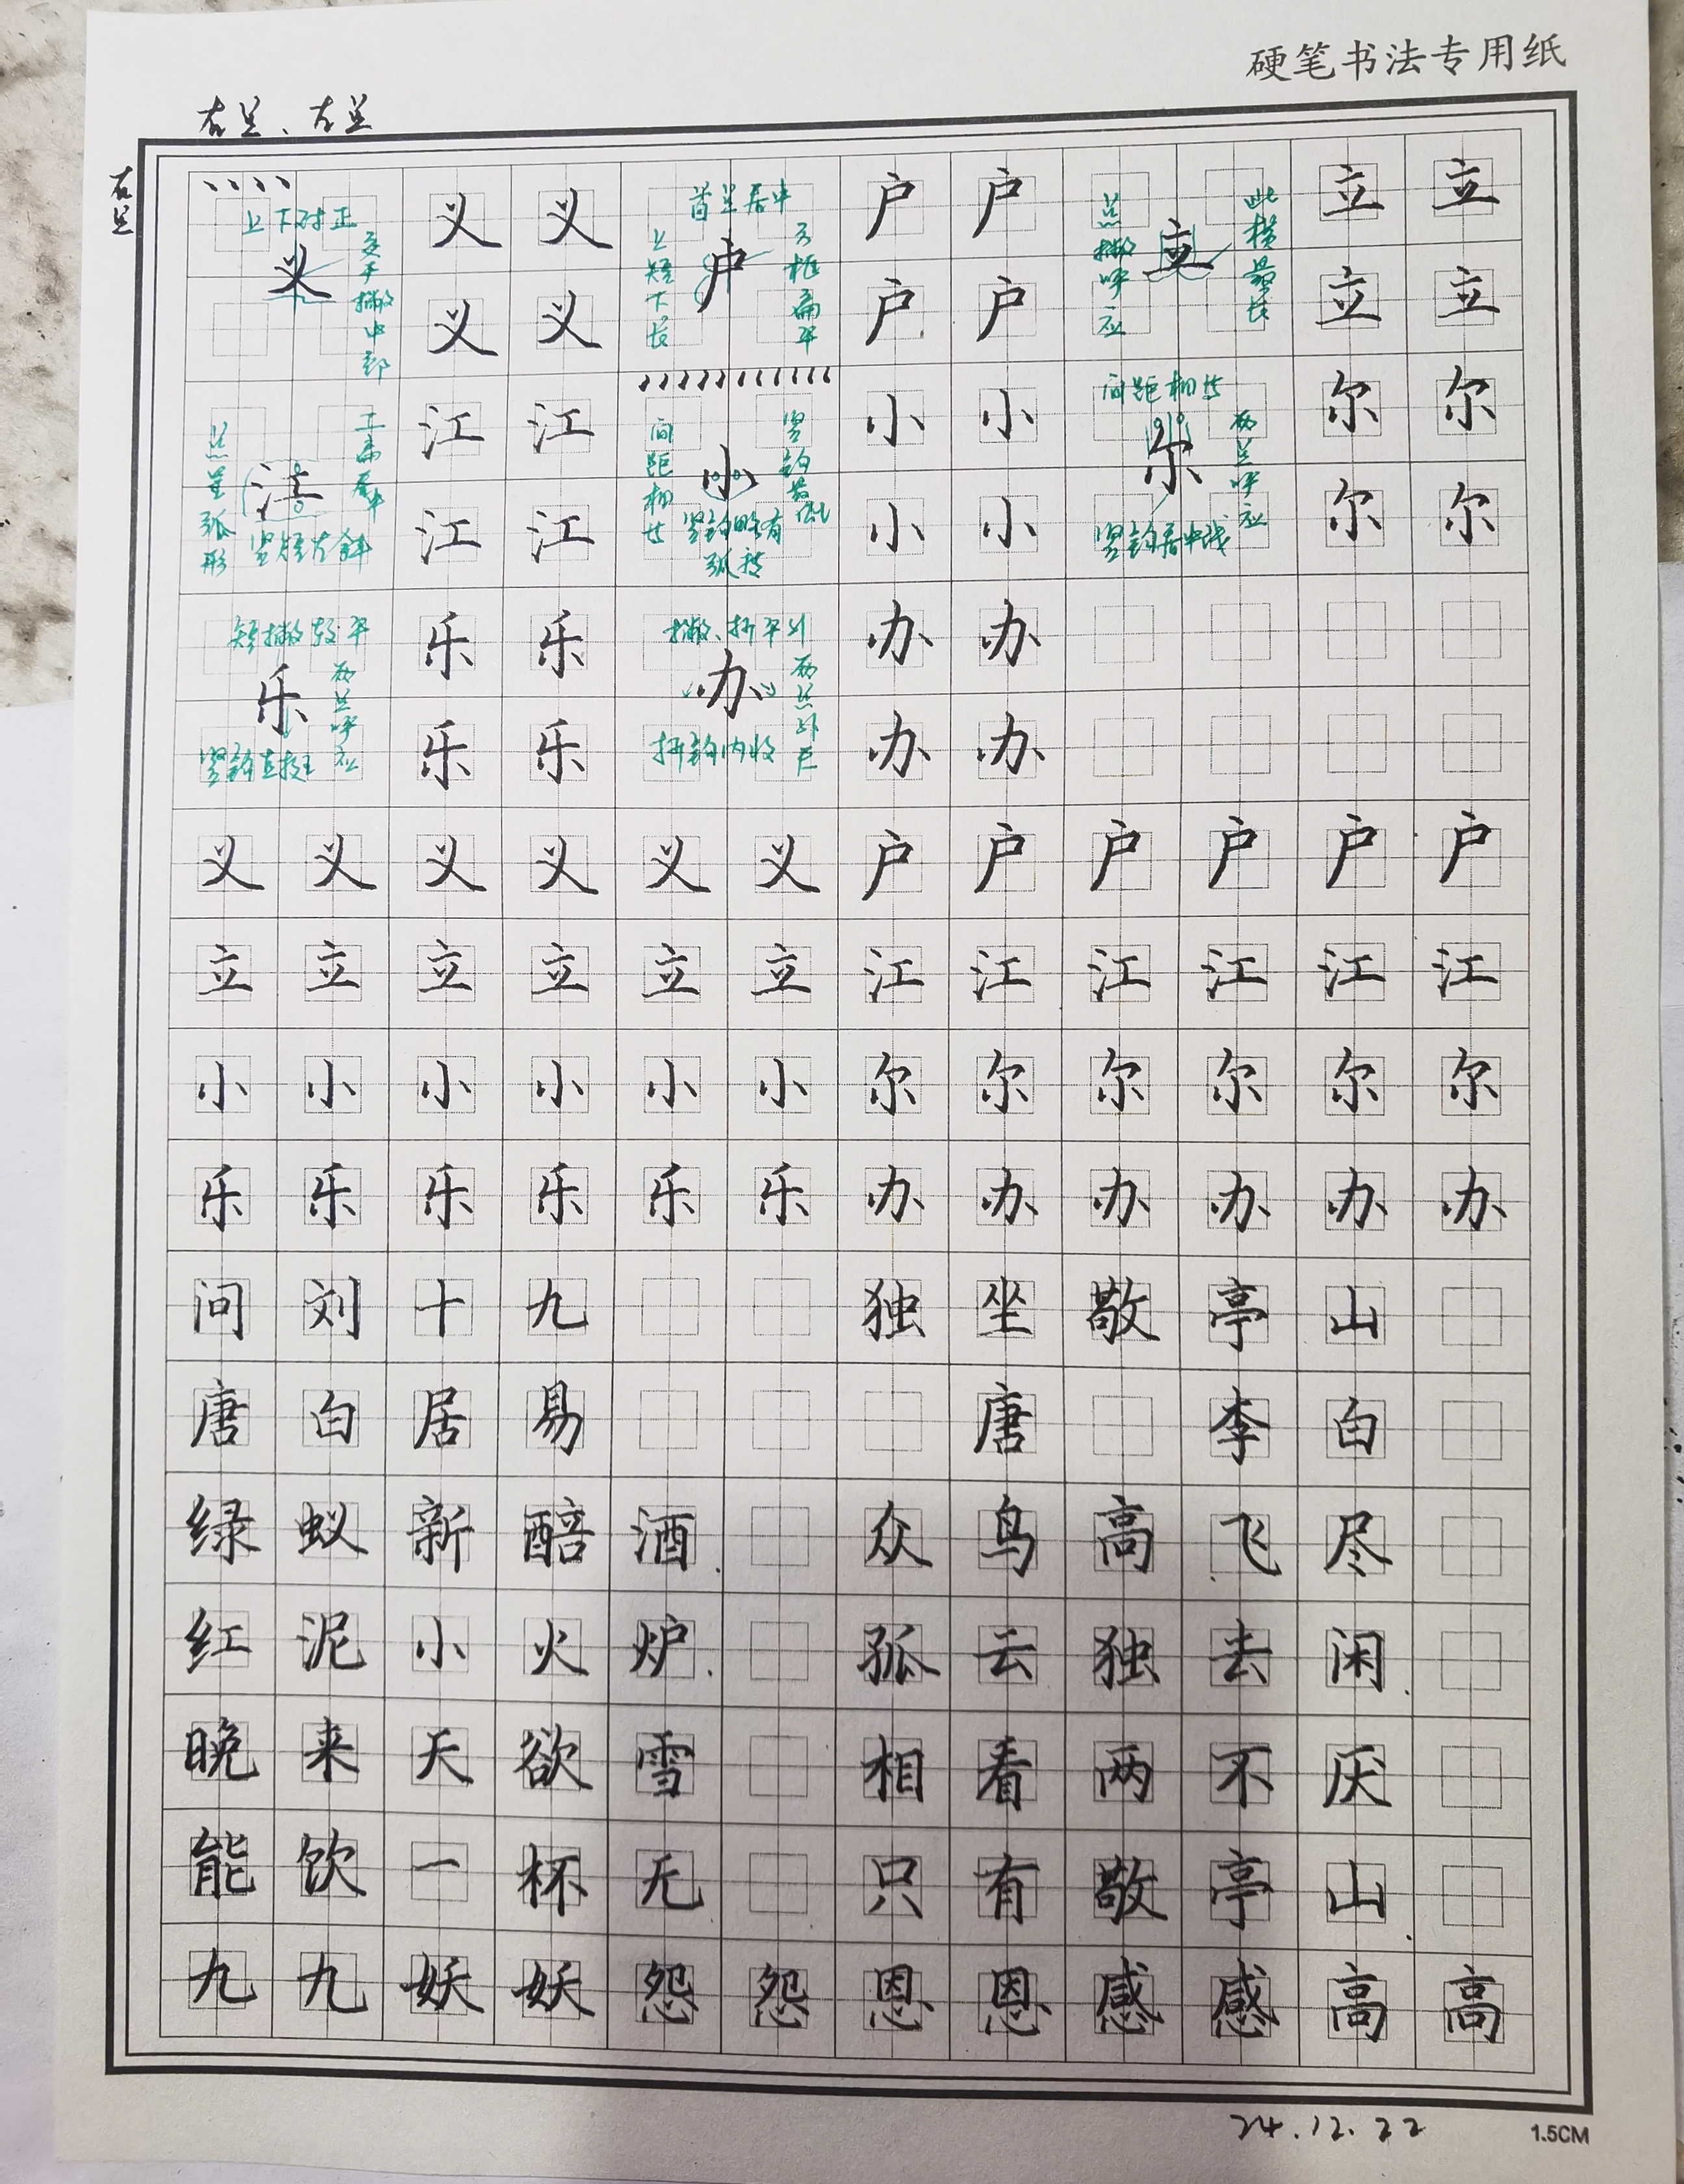 硬笔书法专用纸
右点、左点
右点
上下对正
交于撇中部
义
义 义
义 义
首点居中
上短下长
方框扁平
户
户 户
户 户
点撇呼应
此横最长
立
立 立
立 立
点呈弧形
工来居中
竖短左斜
江
江 江
江 江
间距相等
竖钩最低
竖钩略有弧势
小
小 小
小 小
间距相等
两点呼应
竖钩居中线
尔
尔 尔
尔 尔
短撇较平
两点呼应
竖钩直挺
乐
乐 乐
乐 乐
撇、折平行
两点外展
折钩内收
办
办 办
办 办
义 义 义 义 义 义 户 户 户 户 户 户
立 立 立 立 立 立 江 江 江 江 江 江
小 小 小 小 小 小 尔 尔 尔 尔 尔 尔
乐 乐 乐 乐 乐 乐 办 办 办 办 办 办
问刘十九 独坐敬亭山
唐白居易 唐 李白
绿蚁新醅酒. 众鸟高飞尽
红泥小火炉. 孤云独去闲.
晚来天欲雪 相看两不厌
能饮一杯无 只有敬亭山.
九九妖妖怨怨恩恩感感高高
24.12.22
1.5CM